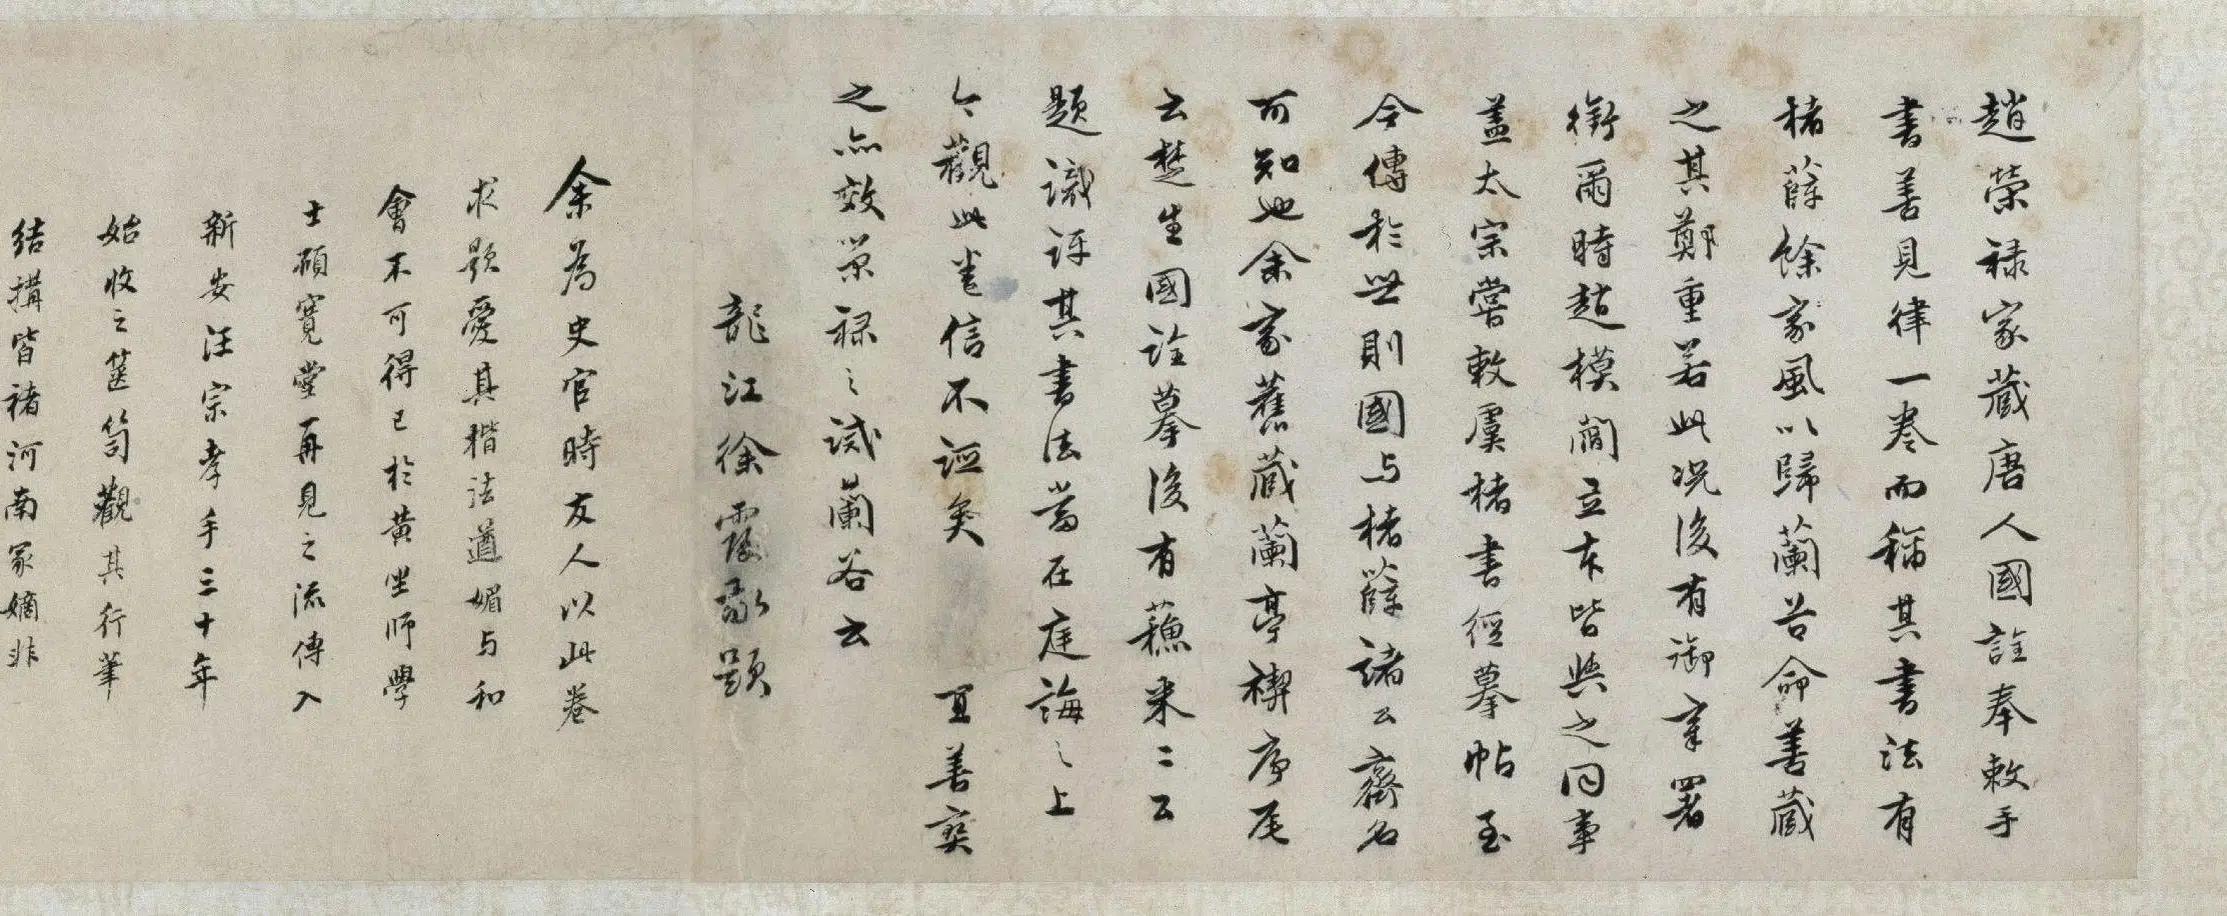 趙榮祿家藏唐人國詮奉敕手
書善見律一卷而稱其書法有
褚薛餘家風以歸蘭谷命善藏
之其鄭重若此況後有御筆署
銜爾時趙模閻立本皆與之同事
蓋太宗嘗敕虞褚書經摹帖至
今傳於世則國与褚薛諸公齊名
可知也余家舊藏蘭亭禊序尾
云楚生國詮摹後有蘓米二公
題識評其書法當在庭誨之上
今觀此卷信不誣矣 宜善寶
之無效榮祿之誡蘭谷云
龍江徐霞敬題
余為史官時友人以此卷
求題愛其楷法遒媚与和
會不可得已於黃坐師學
士碩寬堂再見之流傳入
新安汪宗孝手三十年
始收之篋笥觀其行筆
結搆皆褚河南冢嫡非